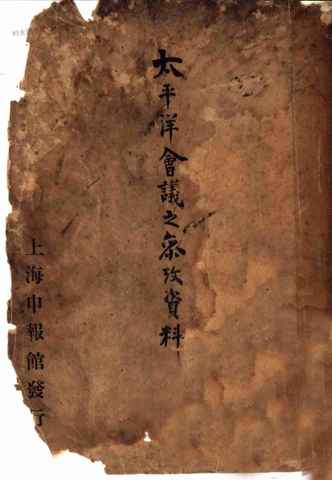 太平洋會議之參攷資料
上海申報館發行